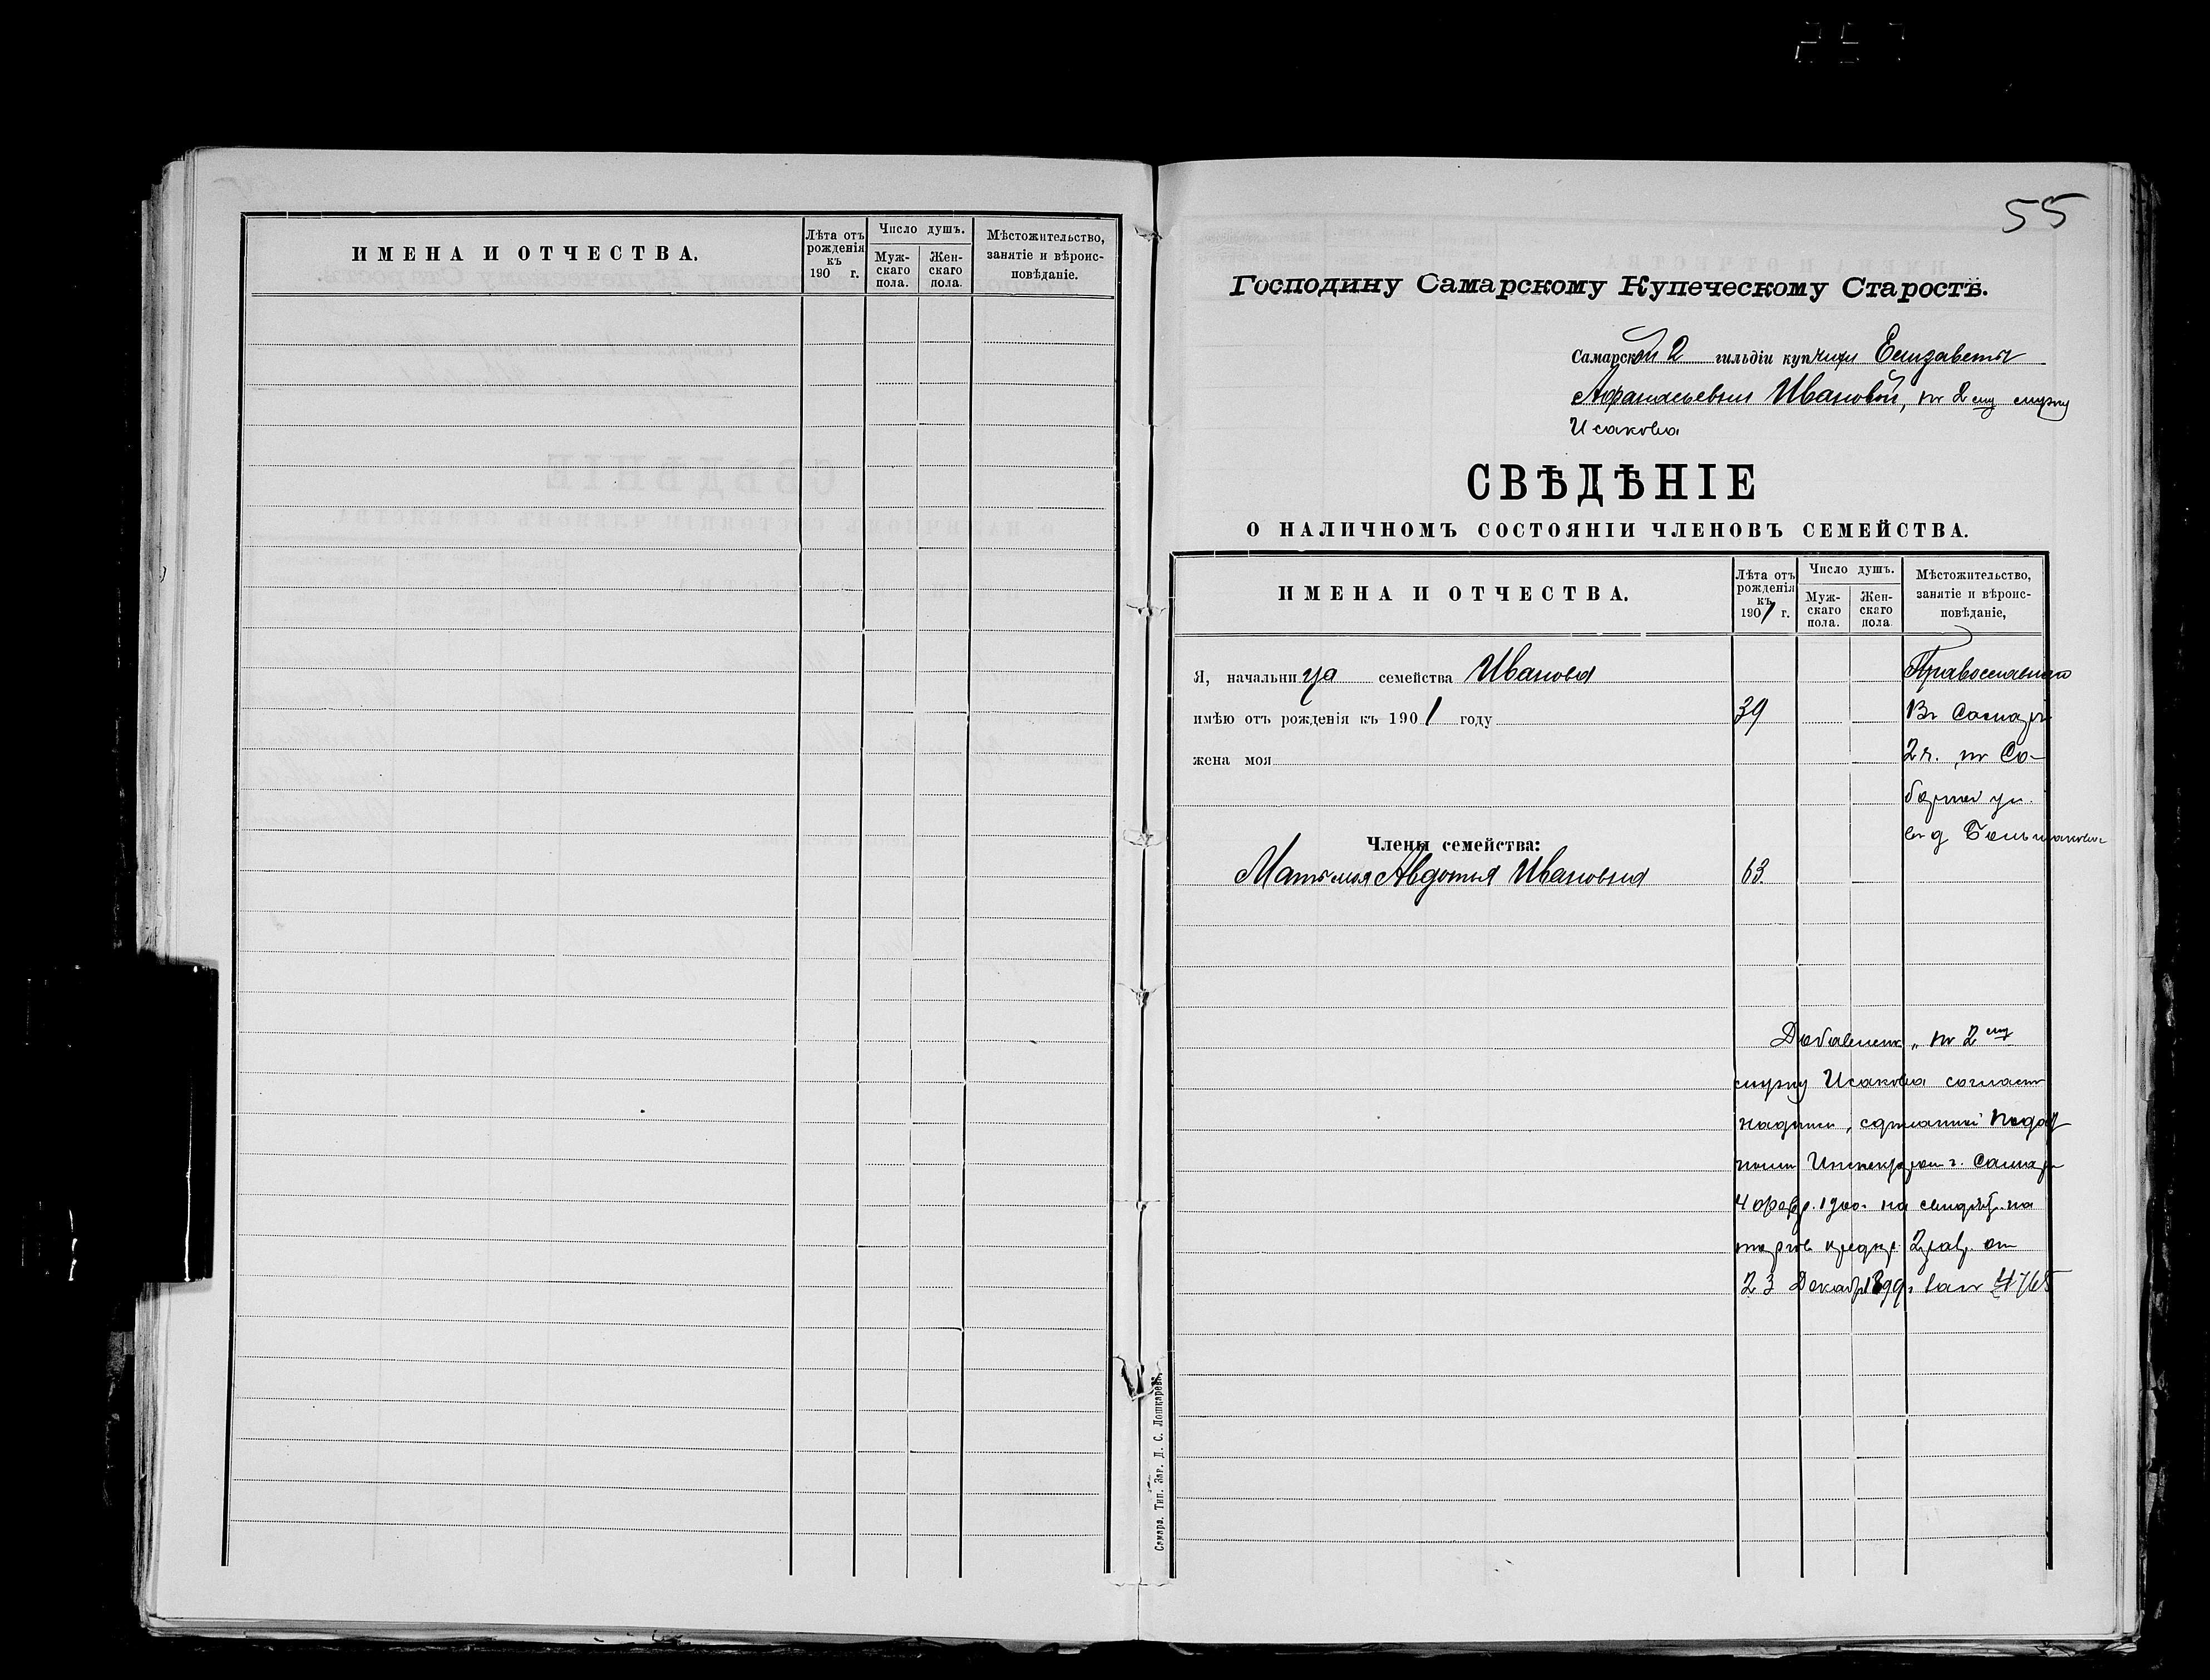 ИМЕНА И ОТЧЕСТВА.
Лѣта отъ рожденія къ 190 г.
Число душъ.
Мужскаго пола.
Женскаго пола.
Мѣстожительство, занятіе и вѣроисповѣданіе.
55
Господину Самарскому Купеческому Старостѣ.
Самарской 2 гильдіи купчихи Елизаветы
Афанасьевны Ивановой, по 2му мужу
Исакова
СВѢДѢНІЕ
О НАЛИЧНОМЪ СОСТОЯНІИ ЧЛЕНОВЪ СЕМЕЙСТВА.
ИМЕНА И ОТЧЕСТВА.
Лѣта отъ рожденія къ 1901 г.
Число душъ.
Мужскаго пола.
Женскаго пола
Мѣстожительство, занятіе и вѣроисповѣданіе,
Я, начальница семейства Иванова
Православнаго
имѣю отъ рожденія къ 1901 году 39
Въ Самарѣ
жена моя
2 ч. по Со-
борной ул.
въ д Большакова
Члены семейства:
Мать моя Авдотья Ивановна 63.
Добавленіе „по 2му
мужу Исакова согласно
надписи, сдѣланной Подат
нымъ Инспекторомъ г. Самары
4 февр. 1900 г. на свидѣт. на
торгов. предпр. 2 разр. от
23 Декабр 1899 г. за № 4765
Самара. Тип. Заг. Д. С. Лошкарева.